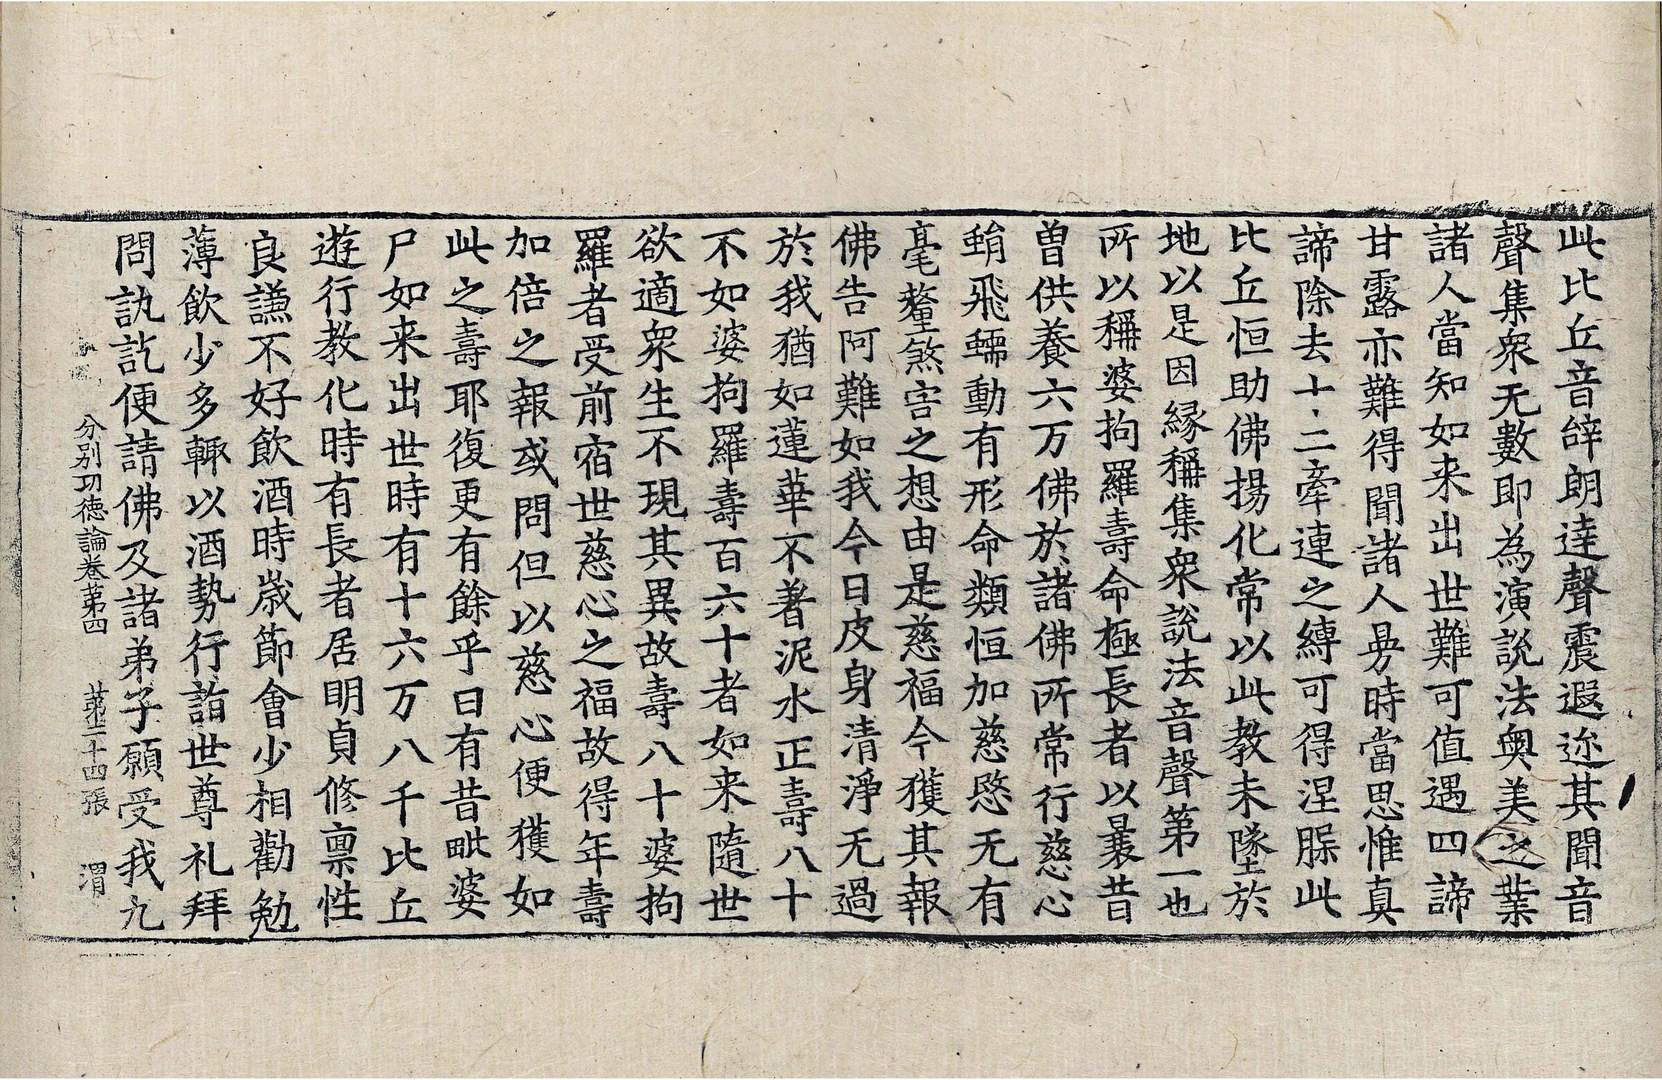 此比丘音辞朗達聲震遐迩其聞音
聲集衆无數即為演說法奧美之業
諸人當知如来出世難可值遇四諦
甘露亦難得聞諸人昜時當思惟真
諦除去十二牽連之縛可得涅脲此
比丘恒助佛揚化常以此教未墜於
地以是因縁稱集衆說法音聲第一也
所以稱婆拘羅壽命極長者以曩昔
曽供養六万佛於諸佛所常行慈心
蜎飛蠕動有形命類恒加慈愍无有
毫𨤲煞害之想由是慈福今獲其報
佛告阿難如我今日皮身清淨无過
於我猶如蓮華不著泥水正壽八十
不如婆拘羅壽百六十者如来隨世
欲適衆生不現其異故壽八十婆拘
羅者受前宿世慈心之福故得年壽
加倍之報或問但以慈心便獲如
此之壽耶復更有餘乎曰有昔毗婆
尸如来出世時有十六万八千比丘
遊行教化時有長者居明貞修禀性
良謙不好飲酒時歳節會少相勸勉
薄飲少多輙以酒勢行詣世尊礼拜
問訊訖便請佛及諸弟子願受我九
分別功徳論卷苐四 苐二十四張 渭